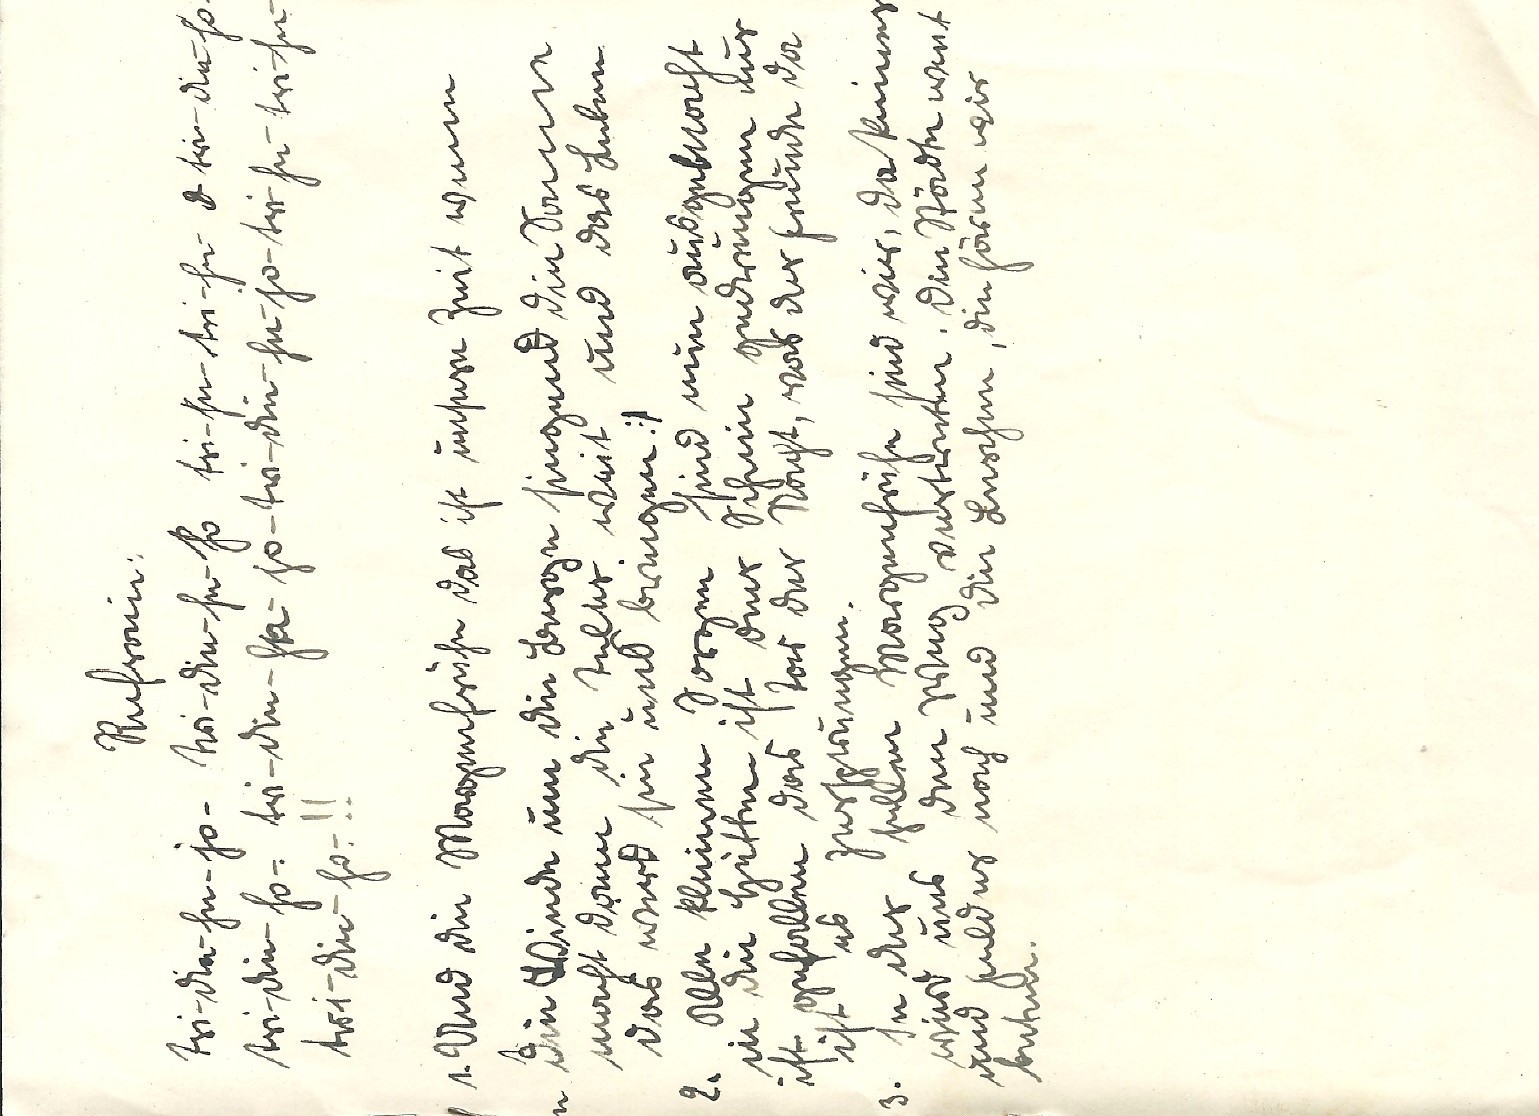 Refrain:
tri-die-he-jo- tri-die-he-ho tri-he-tri-he tri-die-ho.
tri-die-ho-. tri-die-he-jo-tri-die-he-jo-tri he-tri-he-
tri-die-ho-!!
1. Und die Morgenfrühe das ist unsere Zeit wenn
die Winde um die Berge singend die Sonne
macht dann die Täler weit und das Leben
das wird sie uns bringen :|
2. Alle kleinen Sorgen sind nun ausgemacht
in die Hütten ist der Schein gedrungen nur
ist gefallen das Tor der Nacht, vor der Freude da
ist es zersprungen.
3. In der hellen Morgenfrühe sind wir, da keiner
wird uns den Weg vertreten. Den Städte weit
und Felder noch und die Lerchen, die hören wir
beten.